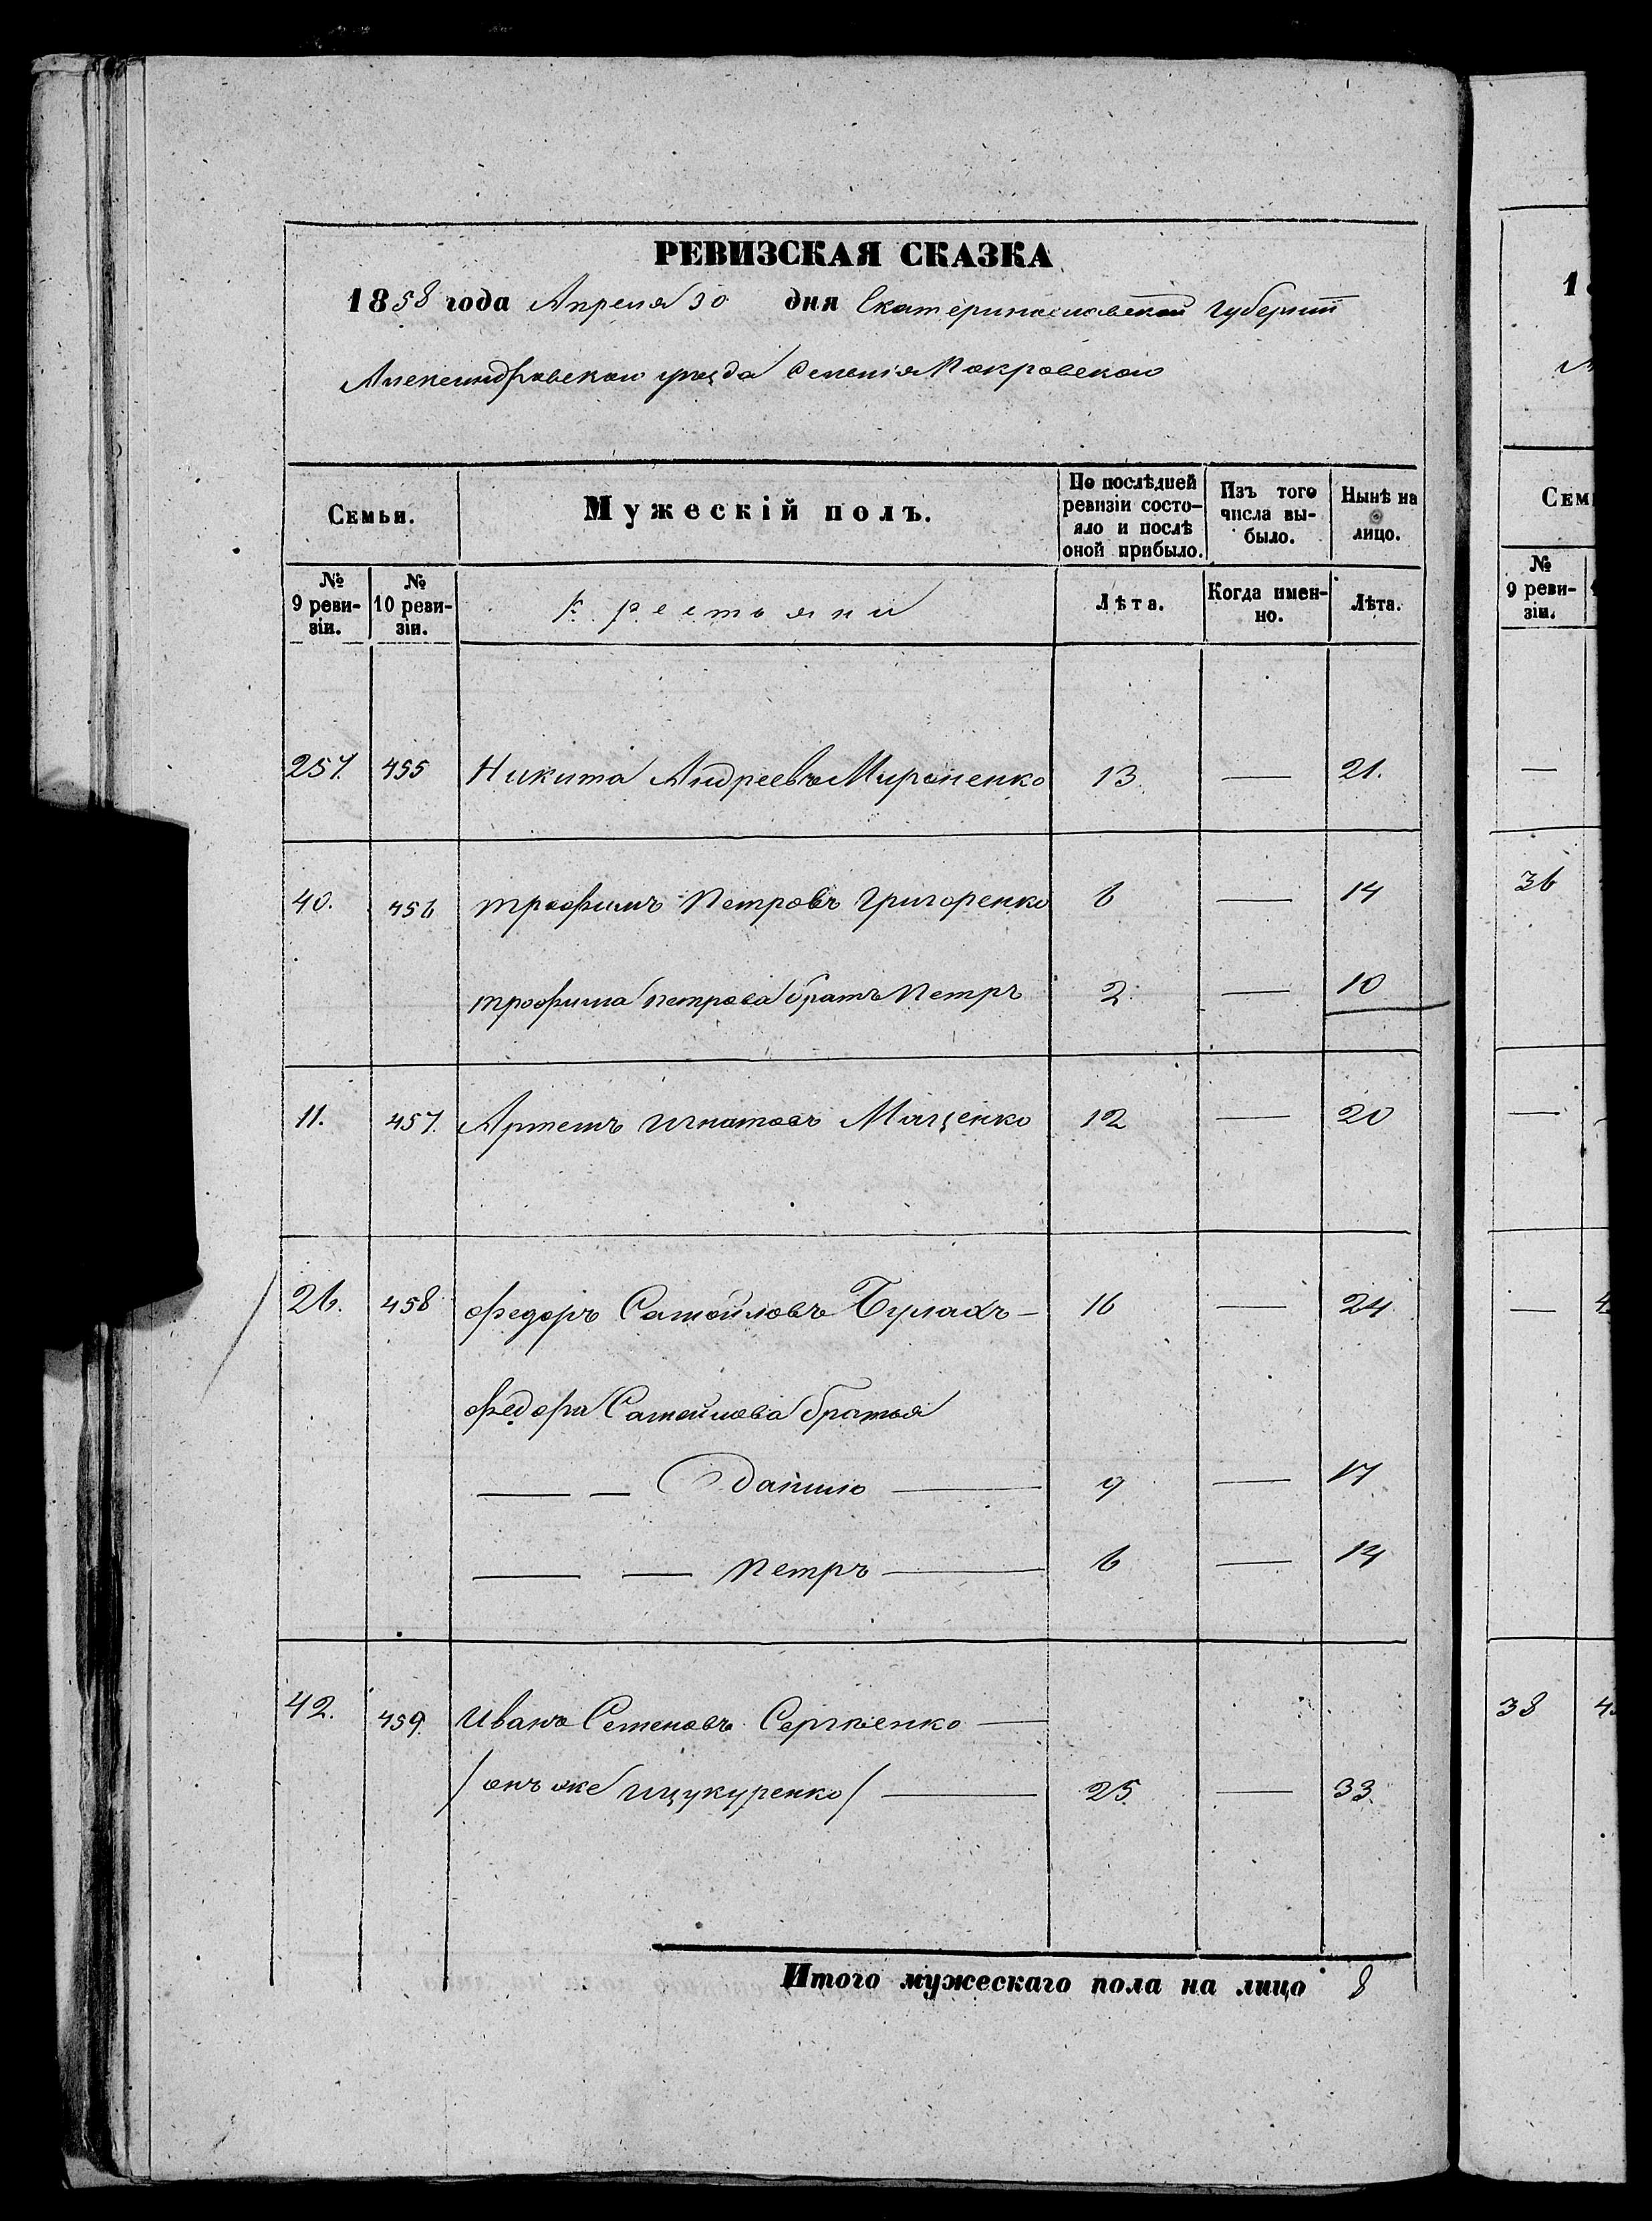 РЕВИЗСКАЯ СКАЗКА
1858 года Апреля 30 дня Екатеринославской губернии
Александровскаго уѣзда Селенія Покровскаго
Семьи. Мужескій полъ. По послѣдней ревизіи состояло и послѣ оной прибыло. Изъ того числа выбыло. Нынѣ на лицо.
№ 9 ревизіи. № 10 ревизіи. Крестьяни Лѣта. Когда именно. Лѣта.
257. 455 Никита Андреевъ Мироненко 13 — 21.
40. 456 Трофимъ Петровъ Григоренко 6 — 14
Трофима Петрова братъ Петръ 2 — 10
11. 457. Артемъ Игнатовъ Маценко 12 — 20
26. 458 Федоръ Самойловъ Булахъ — 16 — 24
Федора Самойлова братья
— — Данило — 9 — 17
— — Петръ — 6 — 14
42. 459. Иванъ Семеновъ Сергѣенко —
/ онъ же Щукуренко / — 25 — 33.
Итого мужескаго пола на лицо 8
1
Семь
№
9 реви-
зіи.
—
36
—
— 4
38 4